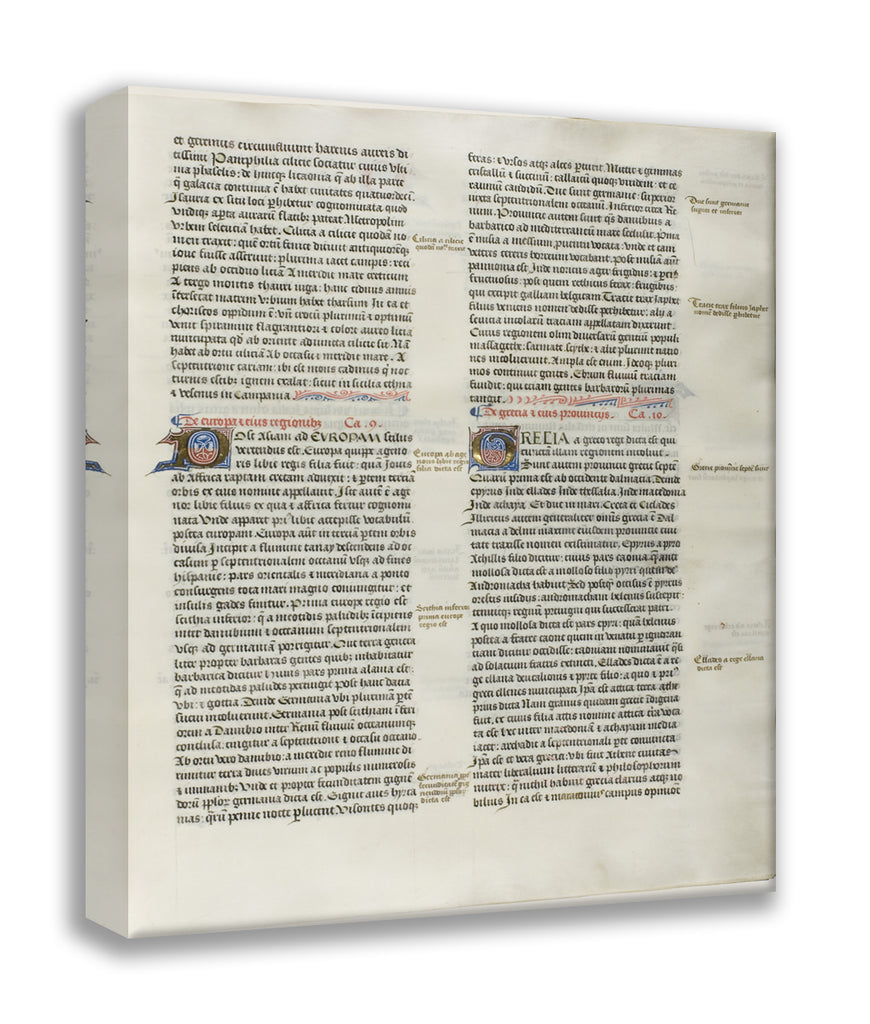 et geminus circumfluunt harenis aureis di
tissimi Pamphilia cilicie sociatur cuius ulti
ma phaselis: de hinc licaonia q̃ ab illa parte
q̃ galacia continua ẽ habet ciuitates quatuordecĩ.
Isauria ex situ loci ꝑhibetur cognominata quod
undiqꝫ aꝑta aurarum flatibꝫ pateat Metropolim
urbem seleuciam habet. Cilicia a cilice quodam no
men traxit: que orti fenice dicunt antiquioremqꝫ
ioue fuisse asserunt: plurima iacet campis: reci
piens ab occiduo liciã A meridie mare creticum
A tergo montis thauri iuga: hanc cidnus amnis
ĩtersecat matrem urbium habet tharsum In ea et
choriscos opidum ẽ:
habet ab ortu ciliciã Ab occasu et meridie mare. A
septentrione cariam: ibi est mons cadimus q̃ noc
turnis estibꝫ ignem exalat: sicut in sicilia ethna
et vesenus in Campania
De europa et eius regionibꝫ Ca. 9.
POst Asiam ad EUROPAM stilus
uertendus est. Europa quippe ageno
ris libie regis filia fuit: qua Jouis
ab Affrica raptam cretam aduexit: et ꝑtem terciã
orbis ex eius nomine appellauit. Iste autẽ ẽ age
nor libie filius ex qua et affrica fertur cognomi
nata Unde apparet prius libiã accepisse vocabulũ
postea europam. Europa aũt in terciam ꝑtem orbis
diuisa Incipit a flumine tanay descendens ad oc
casum ꝑ septentrionalem occeanũ usqꝫ ad fines
hispanie: pars orientalis et meridiana a ponto
consurgens tota mari magno coniungitur: et
insulis gades finitur. Prima europe regio est
scithia inferior: q̃ a meotidis paludibꝫ ĩcipiens
inter danubium et occeanum septentrionalem
usqꝫ ad germaniam porrigitur. Que terra genera
liter propter barbaras gentes quibꝫ inhabitatur
barbarica dicitur et huius pars prima alania est:
q̃ ad meotidas paludes pertingit Post hanc dacia
ubi et gottia. Deinde Germania ubi plurimã ꝑtẽ
sueui incoluerunt. Germania post scithiam ĩferi
orem a Danubio inter Renũ fluuiũ occeanumqꝫ
conclusa: cingitur a septentrione et occasu occeano.
Ab ortu vero danubio: a meridie reno flumine di
rimitur terra diues virum ac populis numerosis
et immanibꝫ Unde et propter fecunditatem gignẽ
dorũ ppl̃oꝝ germania dicta est. Gignit aues hyrca
nias: qũ penne nocte ꝑlucent Visontes quoqꝫ
Cilicia a cilice
Europa ab age
noris libie regis
filia dicta est
Scithia inferior
prima europe
regio est
Germania ꝓpt̃
fecunditatẽ gig
nendorũ ppl̃oꝝ
dicta est
feras: et ursos atqꝫ alces ꝑturit. Mittit et gemmas
cristallũ et succinũ: callaicũ quoqꝫ viridem: et ce
raunium candidũ. Due sunt germanie: superior
iuxta septentrionalem occeanũ. Inferior circa Re
num. Prouincie autem sunt q̃s danubius a
barbarico ad mediterraneum mare secludit. Pma
ẽ misia a messium prouentu vocata: unde et eam
veteres cereris horreum vocabant. Post misiam aũt
pannonia est Inde noricus ager frigidus: et ꝑcius
fructuosus: post quem rethicus ferax: frugibus:
qui excipit galliam belgicam. Tracie tirax Japhet
filius veniens nomen dedisse perhibetur: alij a
seuicia incolarũ traciam appellatam dixerunt.
Cuius regionem olim diuersarũ gentiũ populi
massagethe: sarmate: scythe: et alie plurime natio
nes incoluerunt. Ampla est enim. Ideoqꝫ pluri
mos continuit gentes. Ebrum fluuiũ traciam
fundit: qui etiam gentes barbarorũ plurimas
tangit.
De grecia et eius prouincijs. Ca. 10.
GRECIA a greco rege dicta est qui
cunctam illam regionem incoluit.
Sunt autem prouincie grecie septẽ
Quarũ prima est ab occidente dalmacia. Deinde
epyrus Inde ellades Inde thessalia. Inde macedonia
Inde achaya. Et due in mari Creta et Ciclades
Illiricus autem generaliter omnis grecia ẽ Dal
macia a delmi maxime eiusdem prouincie ciui
tate traxisse nomen existimatur. Epyrus a pyro
Achillis filio dicitur: cuius pars caonia q̃ ante
molossa dicta est a molosso filio pyrri quem de
Andromacha habuit Sed postqꝫ occisus ẽ pyrrus
orestis insidijs: andromacham helenus suscepit:
tenuitqꝫ regnũ priuigni qui successerat patri
A quo molossa dicta est pars epyri: quã helenus
postea a fratre caone quem in venatu ꝑ ignoran
tiam dicitur occidisse: caoniam nominauit q̃si
ad solatium fratris extincti. Ellades dicta ẽ a re
ge ellana deucalionis et pyrre filio: a quo et pri
greci ellenes nuncupati Ipsa est attica terra athe
prius dicta Nam granus quidam grecie ĩdigena
fuit, ex cuius filia attis nomine attica ẽ vocata
ta est et hec inter macedoniã et achayam media
iacet: archadie a septentrionali ꝑte coniuncta
Ipsa est et vera grecia: ubi fuit Athene ciuitas
mater liberalium litterarũ et philosophorum
nutrix: qua nichil habuit grecia clarius atqꝫ no
bilius In ea est et campus opinione
Due sunt germanie
superior et inferior
Tracie tirax filius Japhet
nomẽ dedisse ꝑhibetur
Grecie prouincie septẽ sunt
Ellades a rege ellana
dicta est